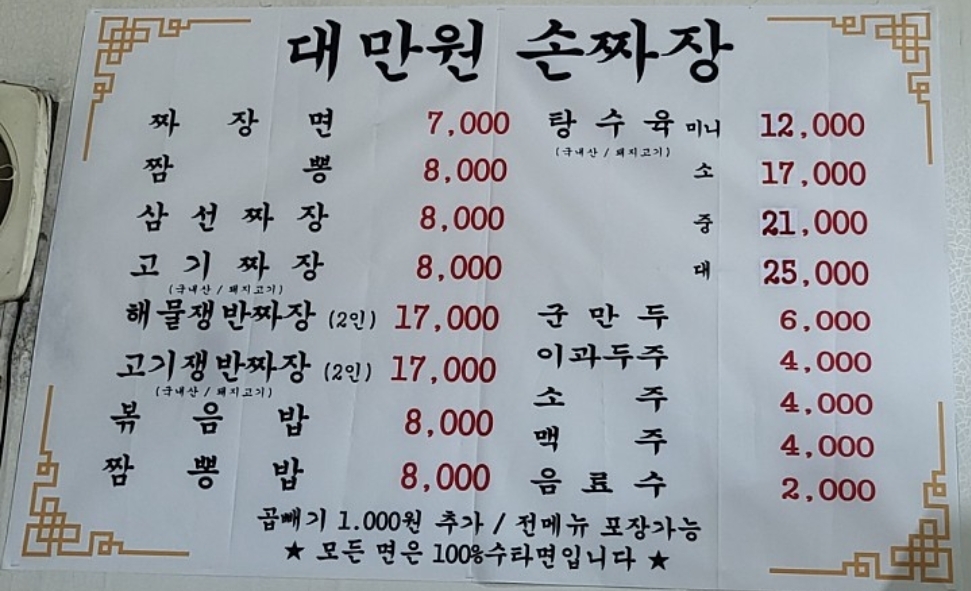 대만원 손짜장
짜장면 7,000
짬뽕 8,000
삼선짜장 8,000
고기짜장 8,000
(국내산 / 돼지고기)
해물쟁반짜장 (2인) 17,000
고기쟁반짜장 (2인) 17,000
(국내산 / 돼지고기)
볶음밥 8,000
짬뽕밥 8,000
탕수육 미니 12,000
(국내산 / 돼지고기)
소 17,000
중 21,000
대 25,000
군만두 6,000
이과두주 4,000
소주 4,000
맥주 4,000
음료수 2,000
곱빼기 1.000원 추가 / 전메뉴 포장가능
★ 모든 면은 100%수타면입니다 ★